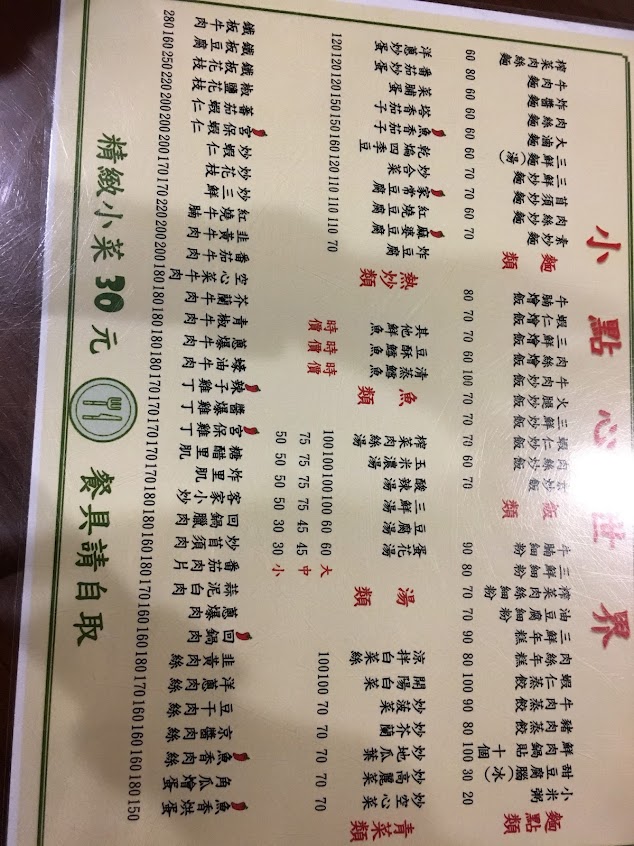 小點心世界
麵類
榨菜肉絲麵 60
牛肉麵 80
炸醬麵 60
肉絲麵 60
大滷麵 60
三鮮麵(湯)
三鮮炒麵 70
苜須炒麵 70
肉絲炒麵 60
素炒麵 70
飯類
牛腩燴飯 80
蝦仁燴飯 70
三鮮燴飯 70
肉絲燴飯 60
牛肉炒飯 100
火腿炒飯 70
三鮮炒飯 70
蝦仁炒飯 70
肉絲炒飯 60
炒飯 70
麵點類
牛腩細粉 90
三鮮細粉 80
榨菜肉絲細粉 70
油豆腐細粉 70
三鮮年糕 90
肉絲年糕 80
蝦仁蒸餃 100
牛肉蒸餃 90
豬肉蒸餃 80
鮮肉鍋貼十個 100
甜豆腐腦(冰) 30
小米粥 20
熱炒類
洋蔥炒蛋 120
番茄炒蛋 120
菜脯蛋 120
塔香茄子 150
魚香茄子 150
乾煸四季豆 160
炒合菜 120
家常豆腐 110
紅燒豆腐 110
麻婆豆腐 110
炸豆腐 70
魚類
其他魚 時價
豆酥鱈魚 時價
清蒸鱈魚 時價
湯類
榨菜肉絲湯 100 75 50
玉米濃湯 100 75 50
酸辣湯 100 75 50
三鮮湯 100 75 50
豆腐湯 60 45 30
蛋花湯 60 45 30
大 中 小
青菜類
涼拌白菜絲 100
開陽白菜 100
炒菠菜 70
炒芥蘭 70
炒地瓜葉 70
炒高麗菜 70
炒空心菜 70
鐵板牛肉 280
鐵板豆腐 160
鐵板花枝 250
椒鹽花枝 220
蕃茄蝦仁 200
宮保蝦仁 200
炒蝦仁 200
炒花枝 170
炒三鮮 170
紅燒牛腩 220
韭黃牛肉 200
番茄牛肉 200
空心菜牛肉 180
芥蘭牛肉 180
青椒牛肉 180
蔥爆牛肉 180
蠔油牛肉 180
辣子雞丁 170
醬爆雞丁 170
宮保雞丁 170
糖醋里肌 170
炸里肌 170
客家小炒 180
回鍋臘肉 180
炒苜須肉 160
番茄肉片 180
蒜泥白肉 170
蔥爆肉 160
回鍋肉 160
韭黃肉絲 180
洋蔥肉絲 170
豆干肉絲 160
京醬肉絲 160
魚香肉絲 160
角瓜燴蛋 180
魚香烘蛋 150
精緻小菜 30 元
餐具請自取